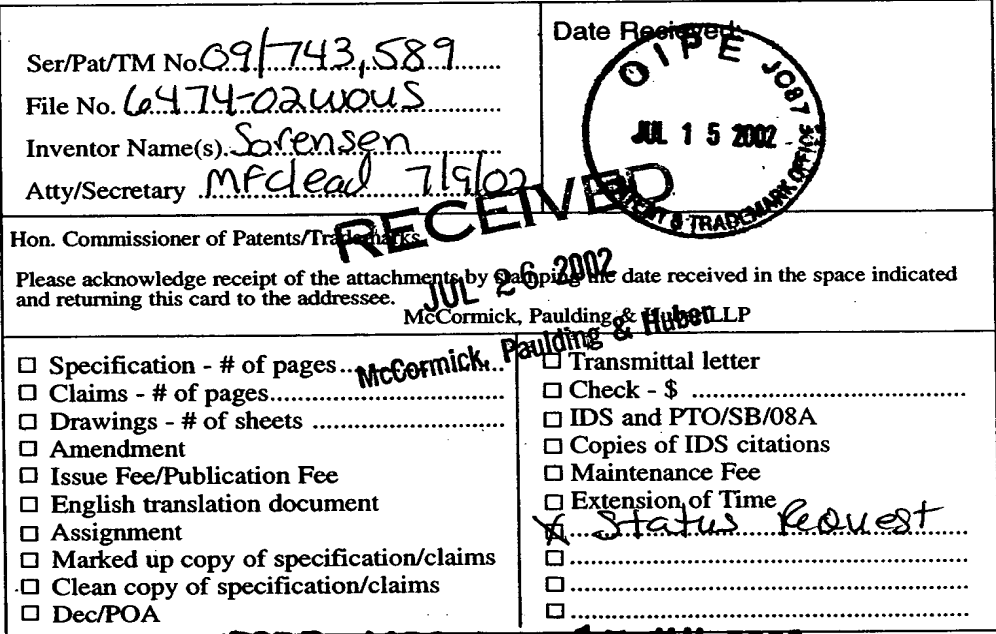 Ser/Pat/TM No. 09/743,589
File No. 6474-02WOUS
Inventor Name(s). Sorensen
Atty/Secretary MFclead 7/9/02
Date Recieved:
OIPE JC87
JUL 15 2002
PATENT & TRADEMARK OFFICE
RECEIVED
JUL 26 2002
McCormick, Paulding & Huber
Hon. Commissioner of Patents/Trademarks
Please acknowledge receipt of the attachments by stamping the date received in the space indicated
and returning this card to the addressee.
McCormick, Paulding & Huber LLP
☐ Specification - # of pages
☐ Claims - # of pages
☐ Drawings - # of sheets
☐ Amendment
☐ Issue Fee/Publication Fee
☐ English translation document
☐ Assignment
☐ Marked up copy of specification/claims
☐ Clean copy of specification/claims
☐ Dec/POA
☐ Transmittal letter
☐ Check - $
☐ IDS and PTO/SB/08A
☐ Copies of IDS citations
☐ Maintenance Fee
☐ Extension of Time
☒ Status Request
☐
☐
☐